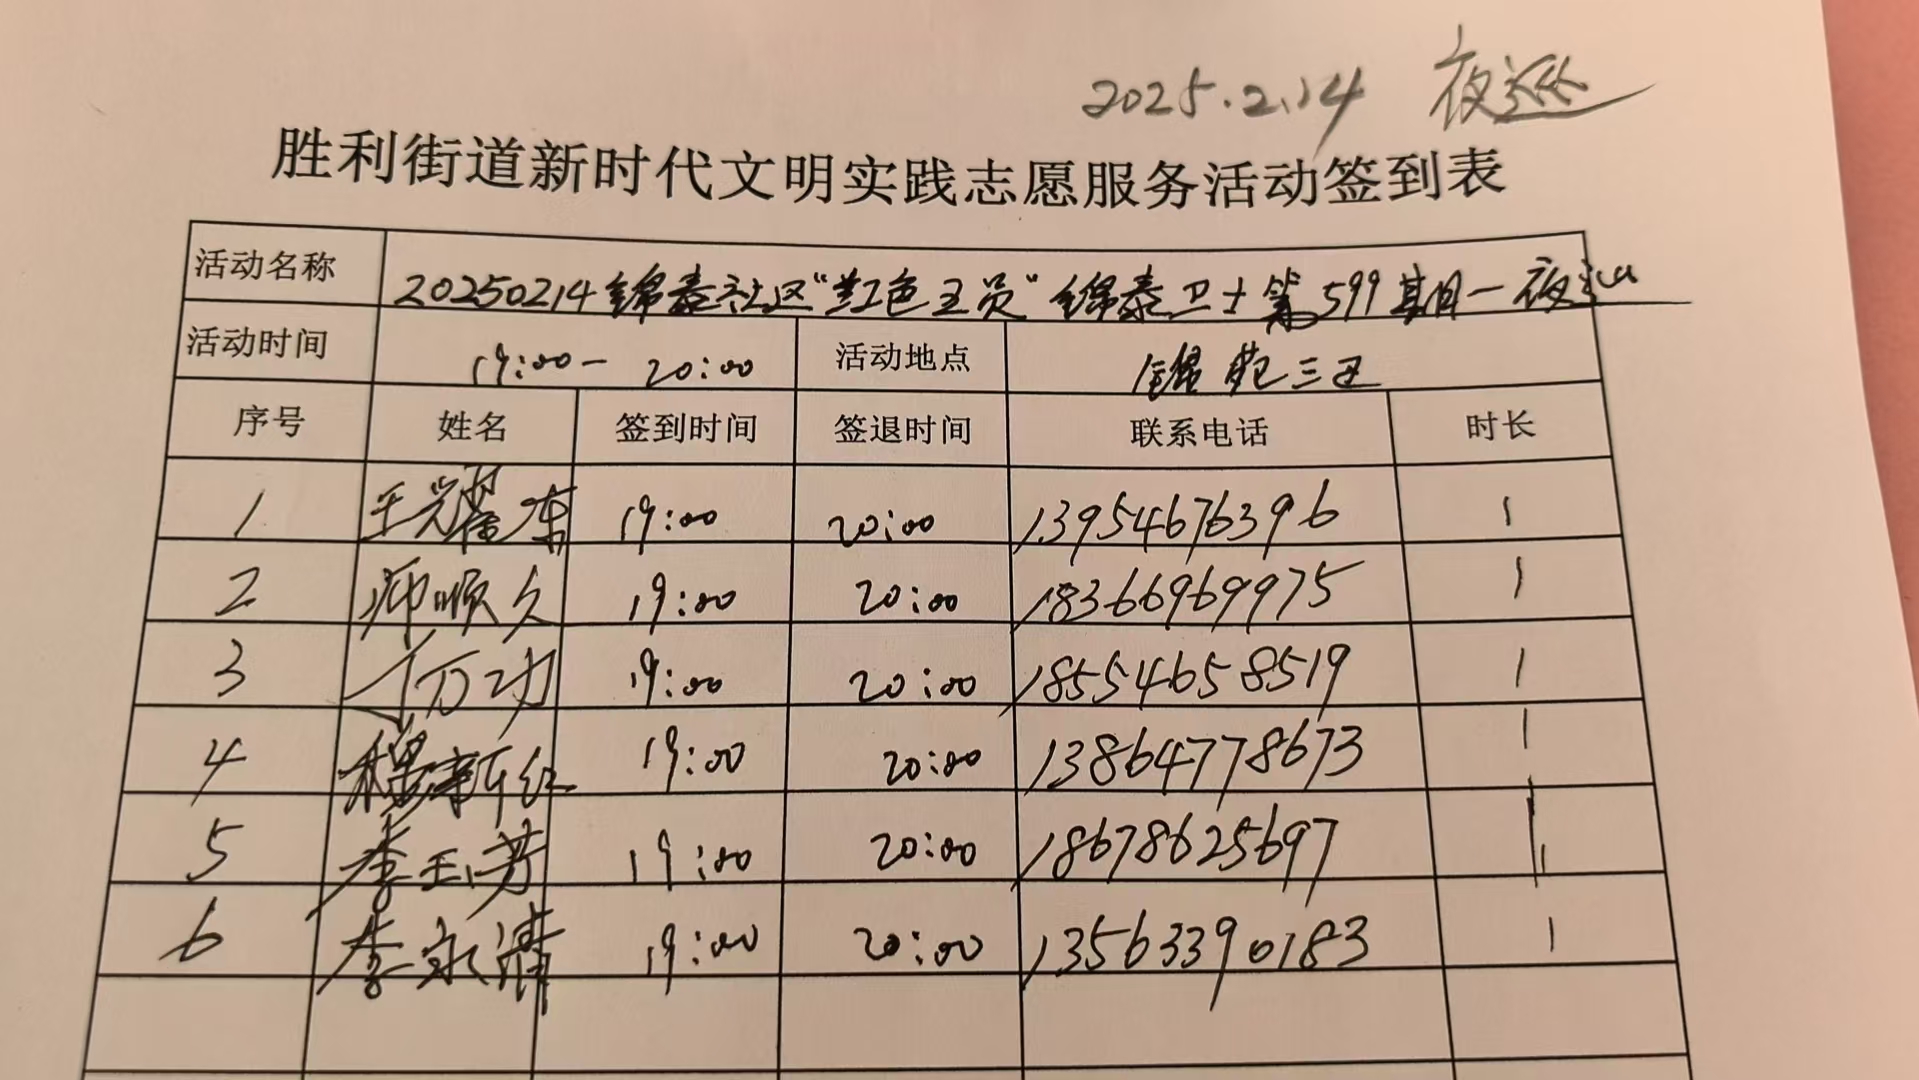 2025.2.14 夜巡
胜利街道新时代文明实践志愿服务活动签到表
活动名称 20250214锦泰社区“红色三员”锦泰卫士第599期一夜巡
活动时间 19:00- 20:00 活动地点 锦苑三区
序号 姓名 签到时间 签退时间 联系电话 时长
1 王耀东 19:00 20:00 13954676396 1
2 师顺久 19:00 20:00 18366969975 1
3 万功 19:00 20:00 18554658519 1
4 穆新红 19:00 20:00 13864778673 1
5 李玉芳 19:00 20:00 18678625697 1
6 李永清 19:00 20:00 13563390183 1